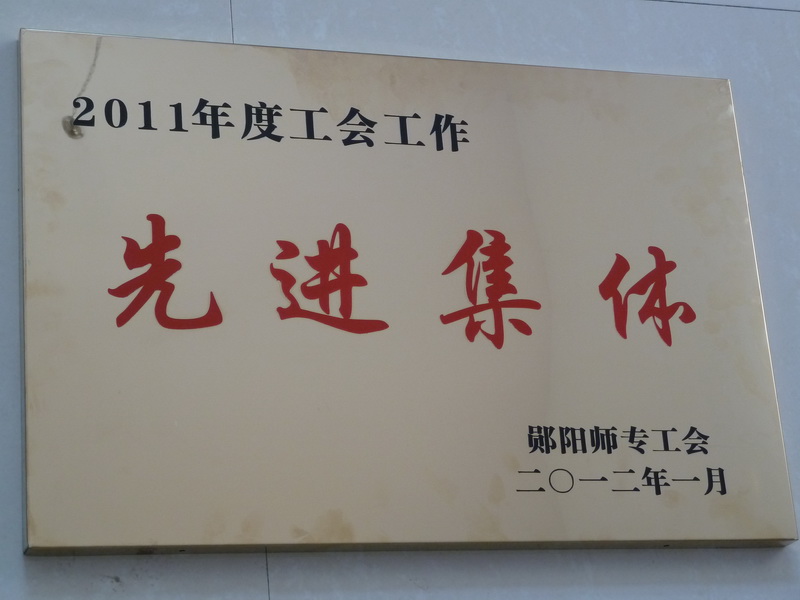 2011年度工会工作
先进集体
郧阳师专工会
二〇一二年一月